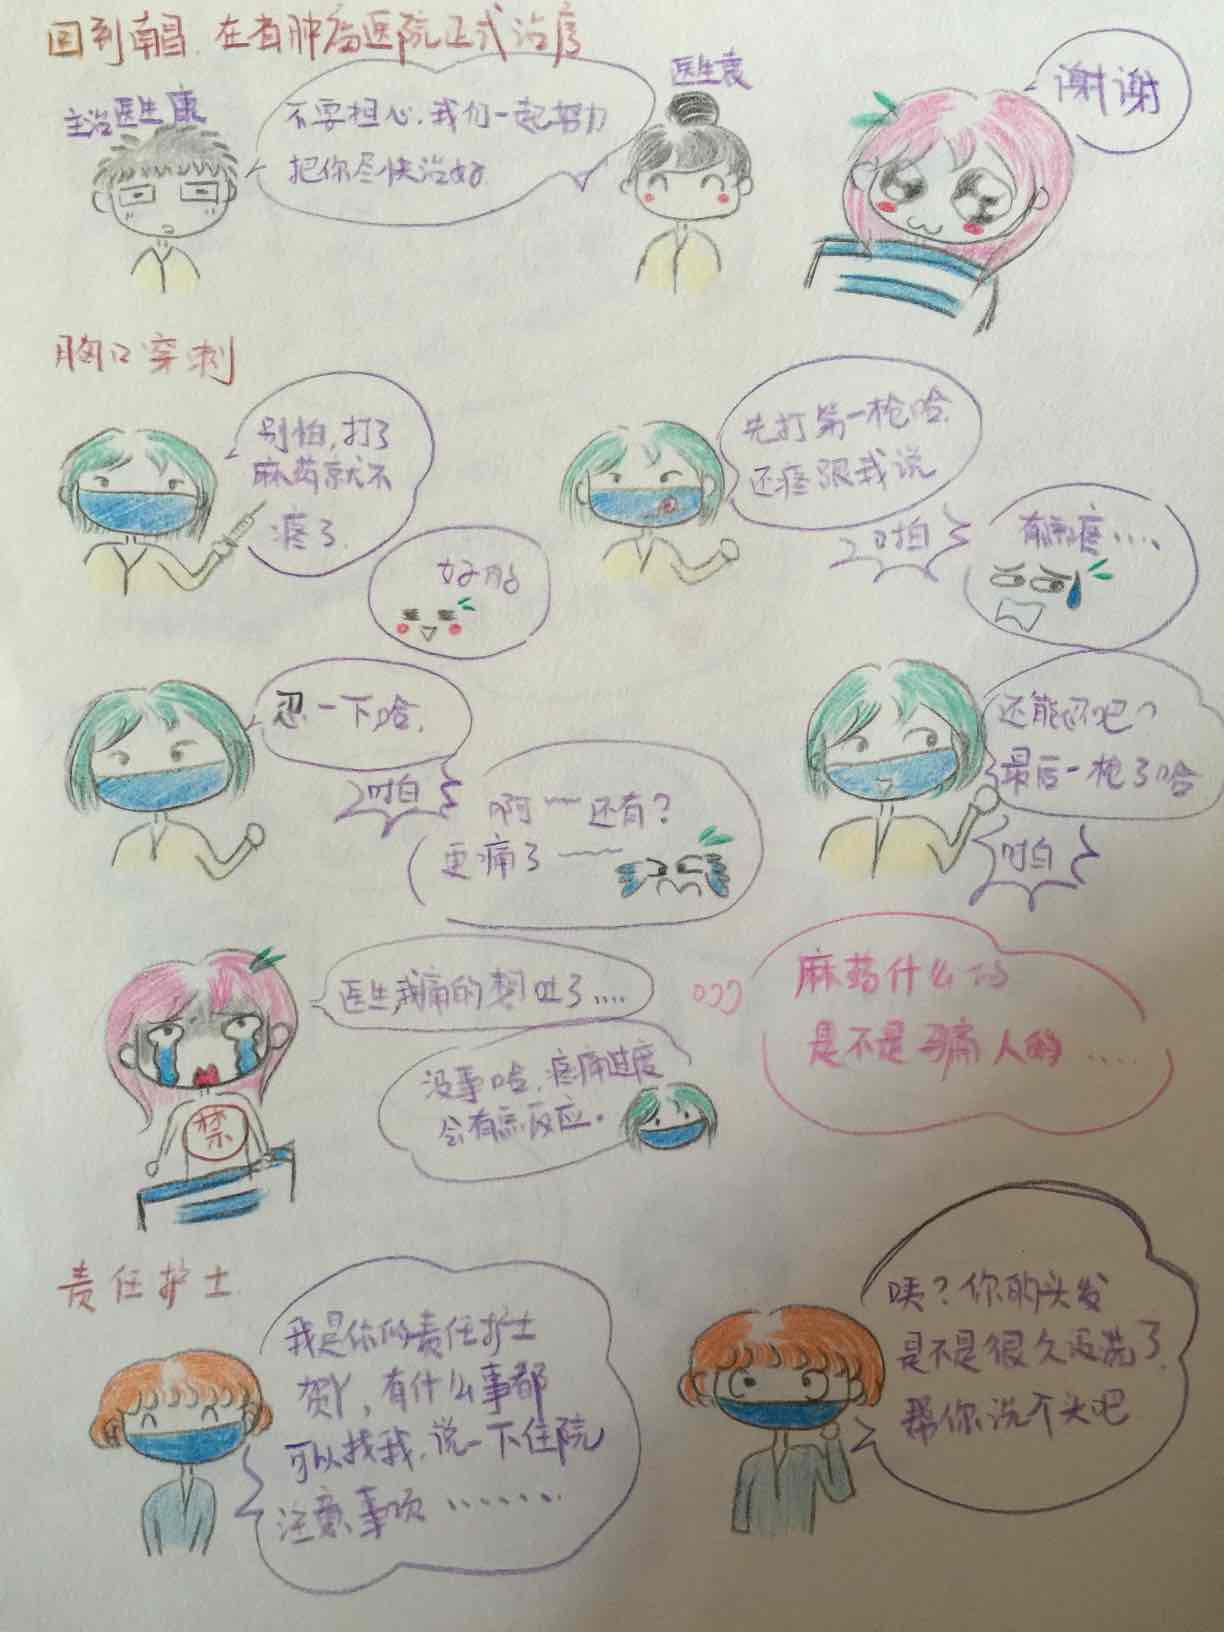 回到南昌.在省肿瘤医院正式治疗
主治医生康
不要担心,我们一起努力
把你尽快治好
医生袁
谢谢
胸口穿刺
别怕,打了
麻药就不
疼了.
好的
先打第一枪哈.
还疼跟我说
啪
有点疼....
忍一下哈.
啪
啊~~还有?
更痛了~~~
还能忍吧?
最后一枪了哈
啪
医生,我痛的想吐了....
禁
没事哈,疼痛过度
会有点反应。
麻药什么的
是不是骗人的.....
责任护士
我是你的责任护士
贺Y,有什么事都
可以找我,说一下住院
注意事项.......
咦?你的头发
是不是很久没洗了.
帮你洗个头吧